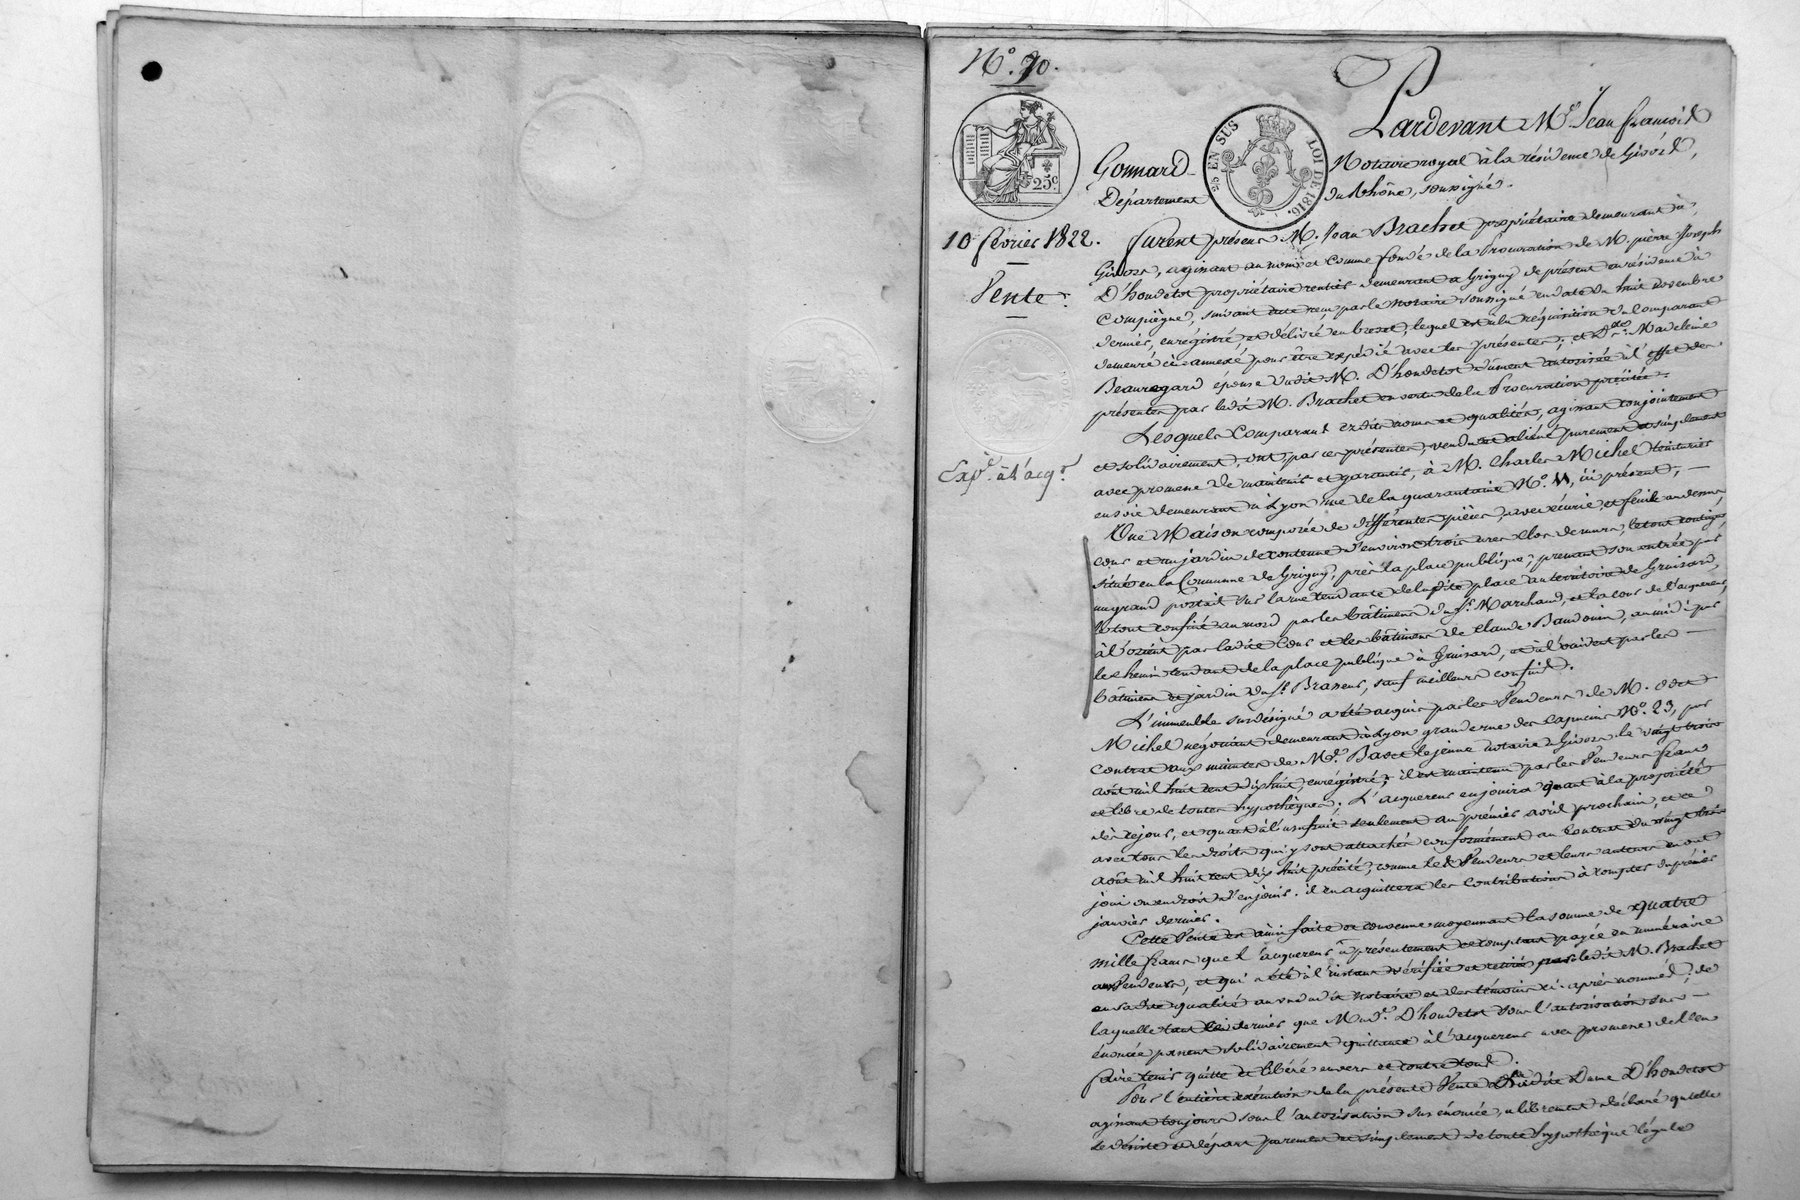 N.º 70.
25.c
25 EN SUS
LOI DE 1816.
Pardevant M.e Jean françois
Gonnard Notaire royal à la résidence de Givors,
Département du Rhône, soussigné.
10 février 1822.
Vente.
Exp.e à l'acq.r
furent présens M. Jean Brachet propriétaire demeurant à
Givors, agissant au nom et comme fondé de la Procuration de M. pierre Joseph
D'houdetot propriétaire rentier demeurant à Grigny de présent en résidence à
Compiègne, suivant acte reçu par le notaire soussigné en date du huit novembre
dernier, enregistré, et délivré en brevet, lequel est à la réquisition du comparant
demeuré ci-annexé pour être expédié avec les présentes; et D.e Madeleine
Beauregard épouse dudit M. D'houdetot dûment autorisée à l'effet des
présentes par ledit M. Brachet en vertu de la Procuration précitée.
Lesquels Comparans esdits noms et qualités, agissant conjointement
et solidairement, ont, par ces présentes, vendu et aliéné purement et simplement
avec promesse de maintenir et garantir, à M. Charles Michel teinturier
en soie demeurant à Lyon rue de la quarantaine N.º ici présent,
Une Maison composée de différentes pièces, avec écurie, et fenil au dessus,
cour et un jardin de contenue d'environ trois ares clos de murs, le tout contigu,
situé en la Commune de Grigny, près la place publique, prenant son entrée par
un grand portail sur la rue tendante de ladite place au territoire de Gruisard,
le tout confiné au nord par les bâtimens du S.r Marchand, et la cour de l'acquereur,
à l'orient par ladite Cour et les bâtimens de Claude Baudouin, au midi par
le chemin tendant de la place publique à Gruisard, et à l'occident par les
bâtimens et jardin du S.r Brassens, sauf meilleurs confins.
L'immeuble susdésigné a été acquis par les Vendeurs de M. Odet
Michel négociant demeurant à Lyon grande rue des capucins N.º 23, par
contrat aux minutes de M.e Basset le jeune notaire à Givors le vingt trois
août mil huit cent dix huit, enregistré; il est maintenu par les Vendeurs franc
et libre de toutes hypothèques; L'acquereur en jouira quant à la propriété
dès ce jour, et quant à l'usufruit seulement au premier avril prochain, et ce
avec tous les droits qui y sont attachés conformément au contrat du vingt trois
août mil huit cent dix huit précité, comme les Vendeurs et leurs auteurs en ont
joui ou eu droit d'en jouir. il en acquittera les contributions à compter du premier
janvier dernier.
Cette Vente est ainsi faite et convenue moyennant la somme de quatre
mille francs que l'acquereur a présentement et comptant payée en numéraire
aux Vendeurs, et qui a été à l'instant vérifiée et retirée par ledit M. Brachet
en sadite qualité au vu dudit notaire et des témoins ci-après nommés; de
laquelle tant ce dernier que Mad.e D'houdetot sous l'autorisation sus-
énoncée passent solidairement quittance à l'acquereur avec promesse de l'en
faire tenir quitte et libéré envers et contre tous.
Pour l'entière exécution de la présente Vente ladite Dame D'houdetot
agissant toujours sous l'autorisation sus énoncée, a librement déclaré qu'elle
se désiste et départ purement et simplement de toute hypothèque légale